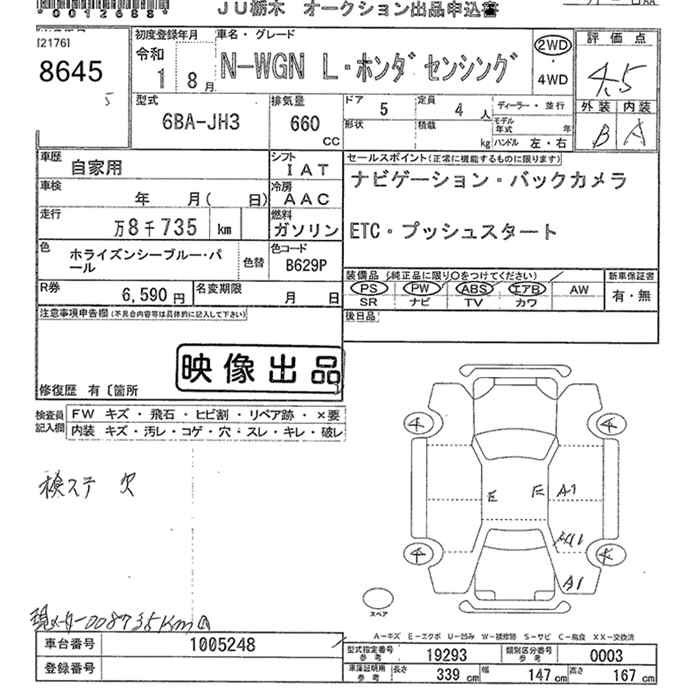 00126881
JU栃木 オークション出品申込書
[2176]
8645
初度登録年月
令和 1 8月
車名・グレード
N-WGN L・ホンダセンシング
2WD
4WD
評価点
4.5
外装 内装
B A
型式
6BA-JH3
排気量
660 CC
ドア 5
定員 4 人
ディーラー・並行
形状
積載 kg
モデル年式 年
ハンドル 左・右
車歴
自家用
シフト
IAT
セールスポイント(正常に機能するものに限ります)
ナビゲーション・バックカメラ
ETC・プッシュスタート
車検
年 月( 日)
冷房
AAC
走行
万8千735 km
燃料
ガソリン
色
ホライズンシーブルー・パール
色替
色コード
B629P
装備品(純正品に限り○をつけてください)
PS PW ABS エアB AW
SR ナビ TV カワ
新車保証書
有・無
R券
6,590円
名変期限
月 日
後日品
注意事項申告欄(不具合内容等は具体的に記入して下さい)
映像出品
修復歴 有〔箇所
検査員記入欄
FW キズ・飛石・ヒビ割・リペア跡・×要
内装 キズ・汚レ・コゲ・穴・スレ・キレ・破レ
検ステ 欠
4 4
E E A1
4 4
A1
スペア
現メーター008735Km
A-キズ E-エクボ U-凹み W-補修跡 S-サビ C-腐食 XX-交換済
車台番号
1005248
登録番号
型式指定番号 参考
19293
類別区分番号 参考
0003
車庫証明用 参考
長さ 339 cm
幅 147 cm
高さ 167 cm